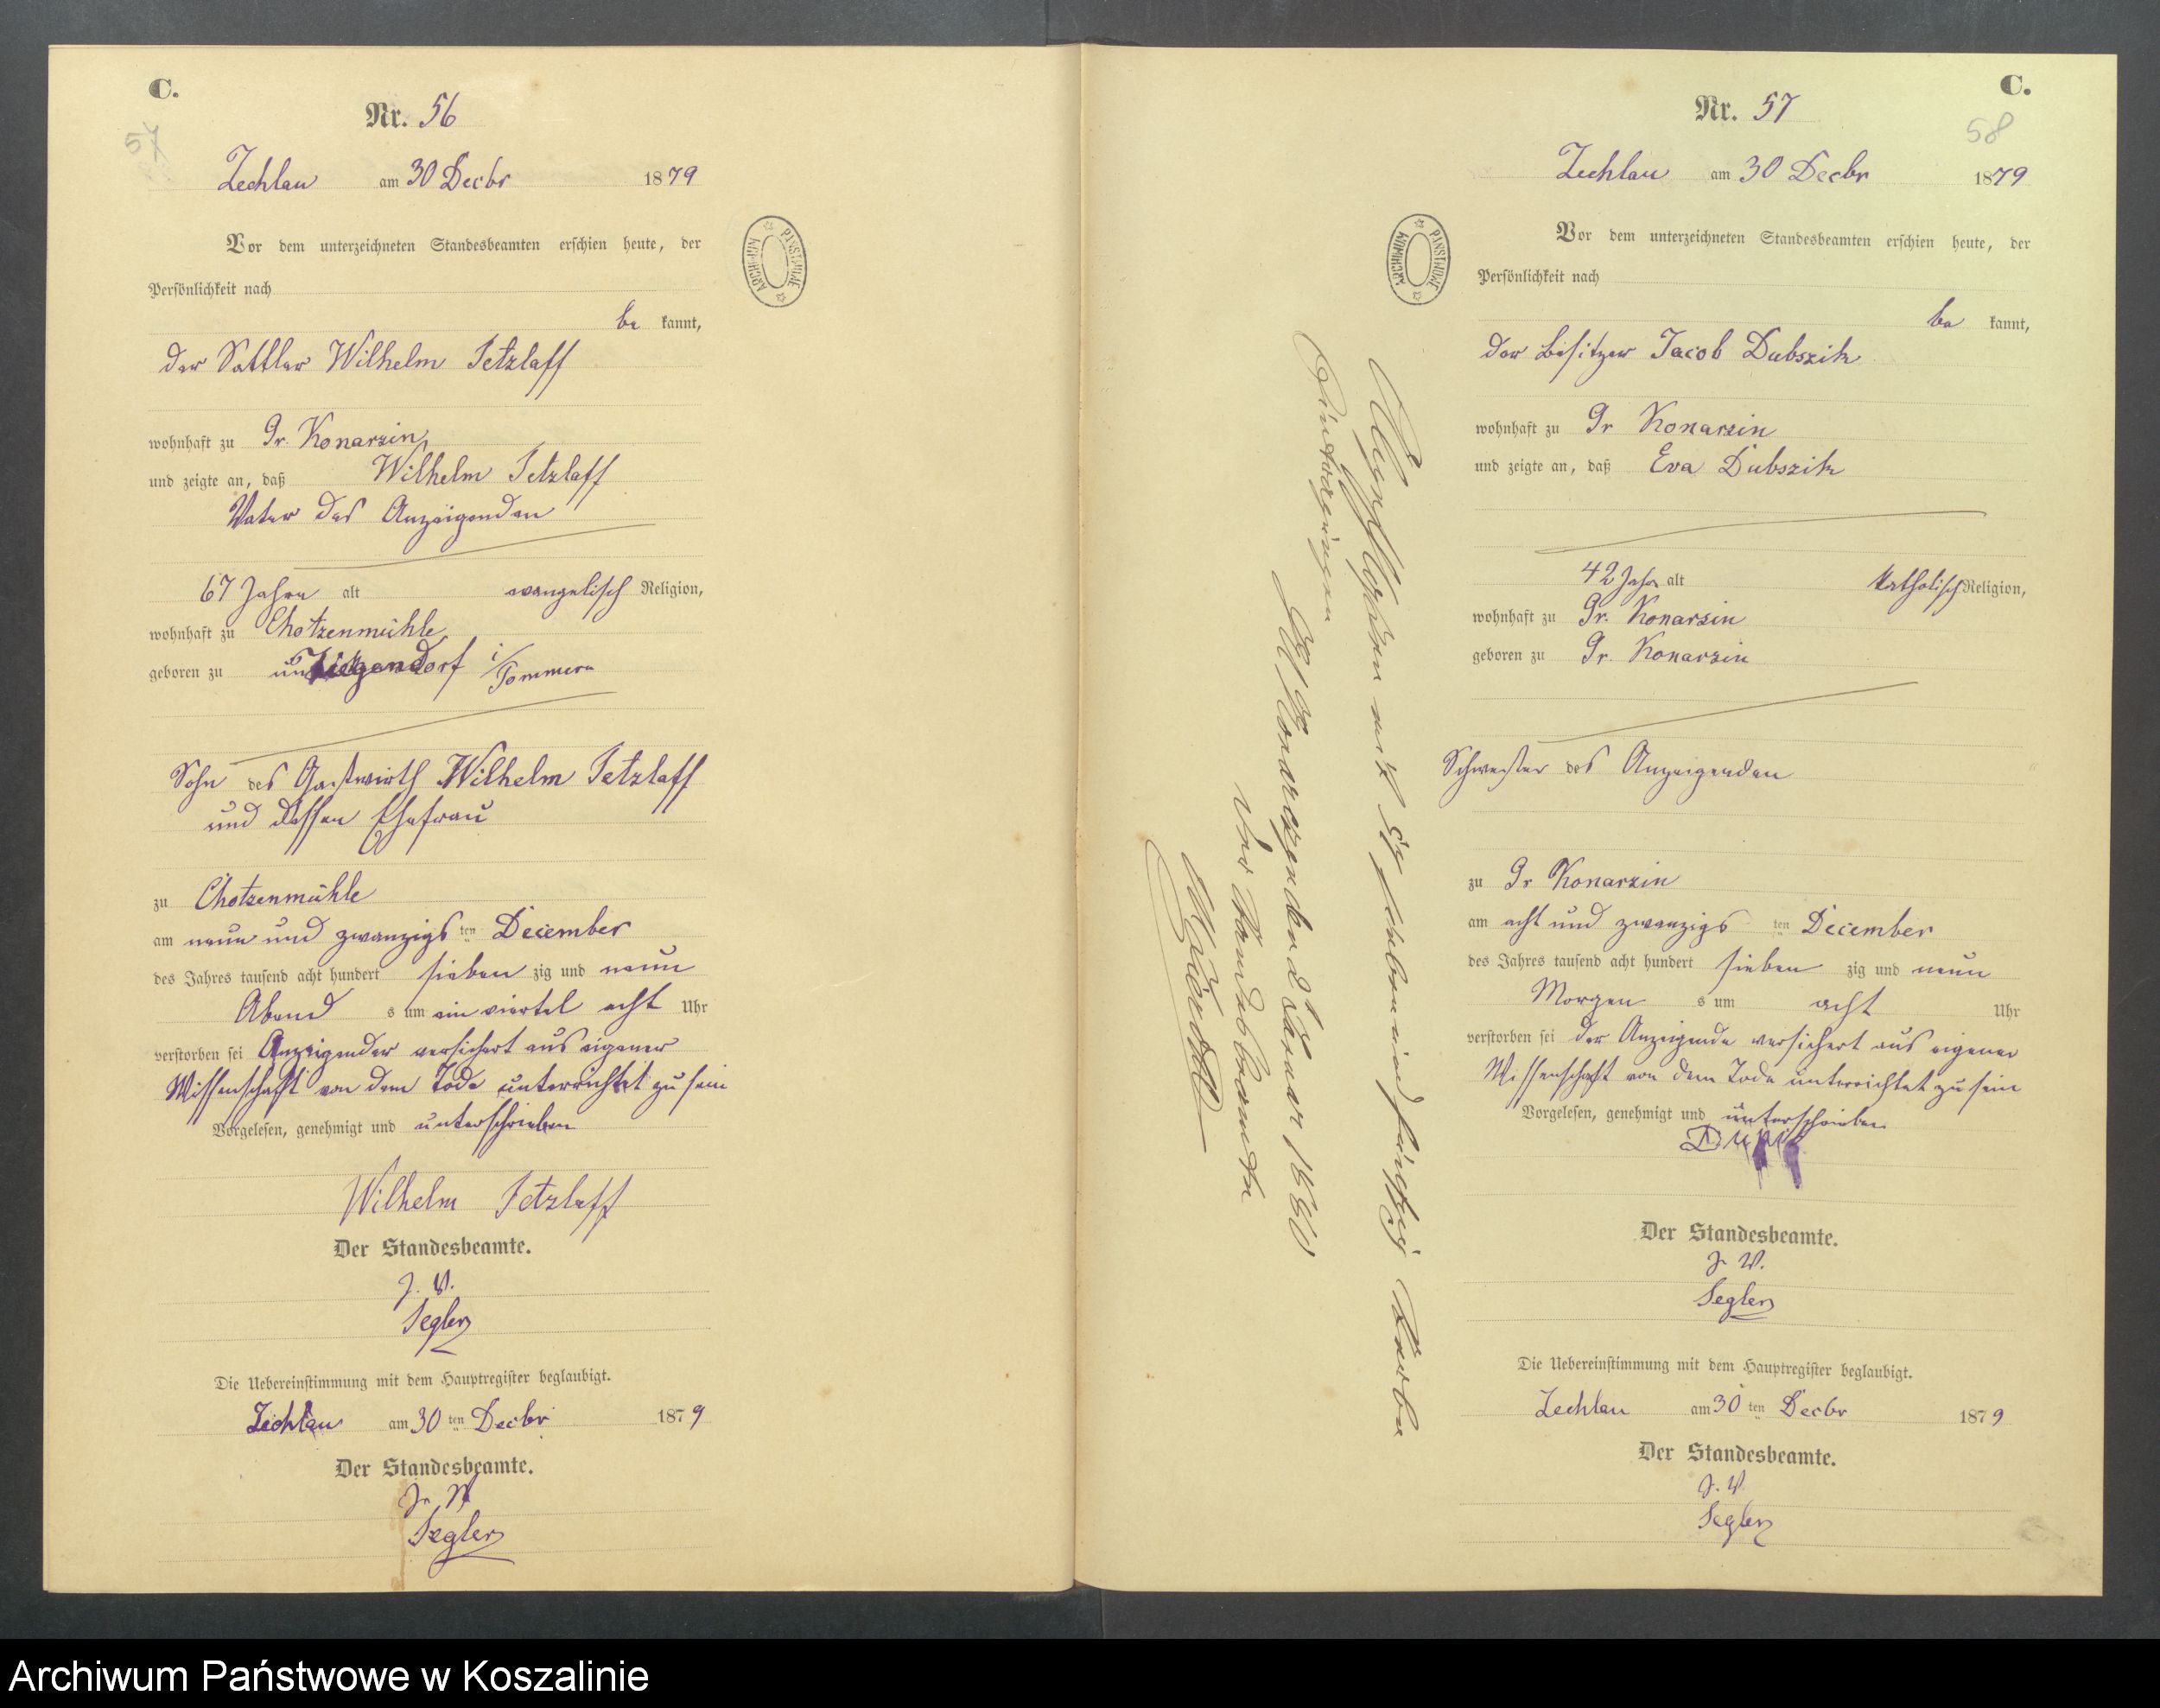 C.
57
Nr. 56
Zechlau am 30 Decbr 1879
Vor dem unterzeichneten Standesbeamten erschien heute, der
Persönlichkeit nach
be kannt,
der Sattler Wilhelm Tetzlaff
wohnhaft zu Gr. Konarzin
und zeigte an, daß Wilhelm Tetzlaff
Vater des Anzeigenden
67 Jahre alt evangelisch Religion,
wohnhaft zu Chotzenmühle
geboren zu i/ Pommern
Sohn des Gastwirth Wilhelm Tetzlaff
und dessen Ehefrau
zu Chotzenmühle
am neun und zwanzigs ten December
des Jahres tausend acht hundert sieben zig und neun
Abend s um ein viertel acht Uhr
verstorben sei Anzeigender versichert aus eigener
Wissenschaft von dem Tode unterrichtet zu sein
Vorgelesen, genehmigt und unterschrieben
Wilhelm Tetzlaff
Der Standesbeamte.
J. V.
Segler
Die Uebereinstimmung mit dem Hauptregister beglaubigt.
Zechlau am 30 ten Decbr 1879
Der Standesbeamte.
J. V.
Segler
ARCHIWUM PAŃSTWOWE
C.
58
Nr. 57
Zechlau am 30 Decbr 1879
Vor dem unterzeichneten Standesbeamten erschien heute, der
Persönlichkeit nach
be kannt,
der Besitzer Jacob Dubszik
wohnhaft zu Gr Konarzin
und zeigte an, daß Eva Dubszik
42 Jahr alt katholisch Religion,
wohnhaft zu Gr. Konarzin
geboren zu Gr. Konarzin
Schwester des Anzeigenden
zu Gr Konarzin
am acht und zwanzigs ten December
des Jahres tausend acht hundert sieben zig und neun
Morgen s um acht Uhr
verstorben sei der Anzeigende versichert aus eigener
Wissenschaft von dem Tode unterrichtet zu sein
Vorgelesen, genehmigt und unterschrieben
Der Standesbeamte.
J. V.
Segler
Die Uebereinstimmung mit dem Hauptregister beglaubigt.
Zechlau am 30 ten Decbr 1879
Der Standesbeamte.
J. V.
Segler
ARCHIWUM PAŃSTWOWE
Abgeschlossen mit sieben und fünfzig Sterbe
Eintragungen
den 2. Januar 1880
Der Standesbeamte
Archiwum Państwowe w Koszalinie